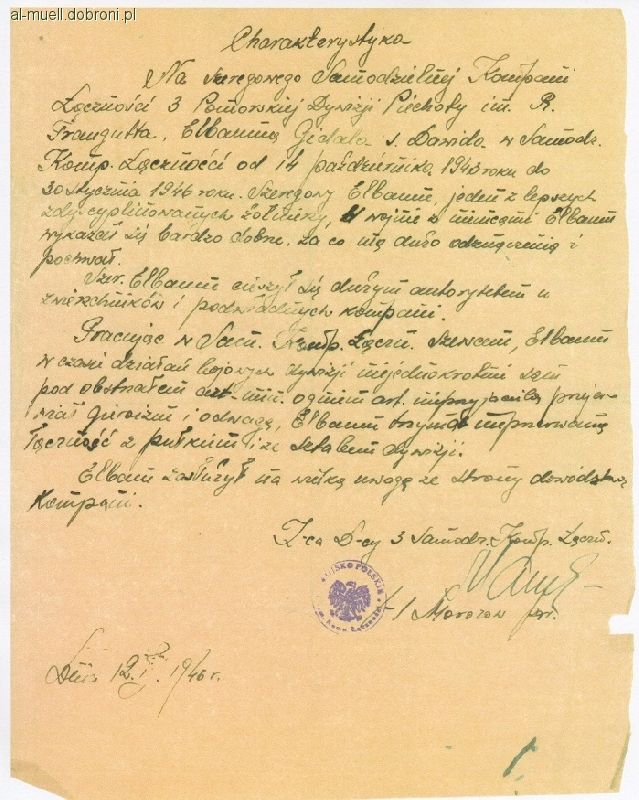 al-muell.dobroni.pl
Charakterystyka
Na szeregowego Samodzielnej Kompani
Łączności 3 Pomorskiej Dywizji Piechoty im. R.
Traugutta, Elbauma Gietala s. Dawida w Samodz.
Komp. Łączności od 14 października 1943 roku do
30 stycznia 1946 roku. Szeregowy Elbaum, jeden z lepszych
żołnierzy, W wojnie z niemcami Elbaum
wykazał się bardzo dobrze. za co ma dużo i
pochwał.
Szer. Elbaum cieszył się dużym autorytetem u
zwierzchników i podwładnych kompani.
Pracując w Sam. Komp. Łączn. Elbaum
w czasie działań bojowych dywizji niejednokrotnie sam
pod obstrzałem art.-min. ogniem art. nieprzyjaciela
i odwagę, Elbaum trzymał nieprzerwaną
łączność z pułkami i ze sztabem dywizji.
Elbaum zasłużył na wielką uwagę ze strony dowództwa
Kompani.
Z-ca D-cy 3 Samodz. Komp. Łączn.
WOJSKO POLSKIE
/-/ Morozow por.
Dnia 12. I. 1946 r.